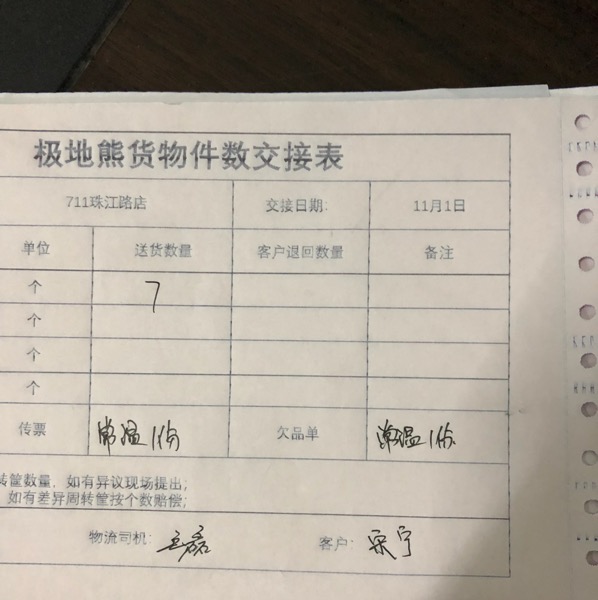 极地熊货物件数交接表
711珠江路店 交接日期: 11月1日
单位 送货数量 客户退回数量 备注
个 7
个
个
个
传票 常温1份 欠品单 常温1份
转筐数量，如有异议现场提出;
如有差异周转筐按个数赔偿;
物流司机: 磊 客户: 宁